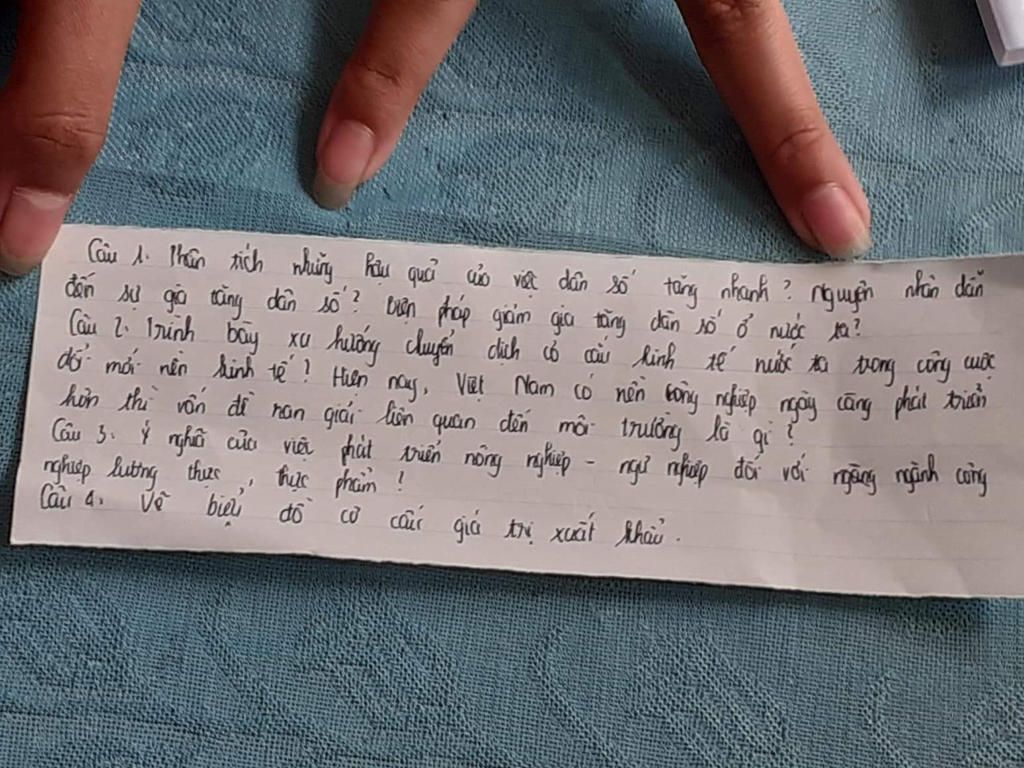 Câu 1. Phân tích những hậu quả của việc dân số tăng nhanh? Nguyên nhân dẫn
đến sự gia tăng dân số? Biện pháp giảm gia tăng dân số ở nước ta?
Câu 2. Trình bày xu hướng chuyển dịch cơ cấu kinh tế nước ta trong công cuộc
đổi mới nền kinh tế? Hiện nay, Việt Nam có nền công nghiệp ngày càng phát triển
hơn thì vấn đề nan giải liên quan đến môi trường là gì?
Câu 3. Ý nghĩa của việc phát triển nông nghiệp - ngư nghiệp đối với ngàng ngành công
nghiệp lương thực, thực phẩm?
Câu 4. Vẽ biểu đồ cơ cấu giá trị xuất khẩu.